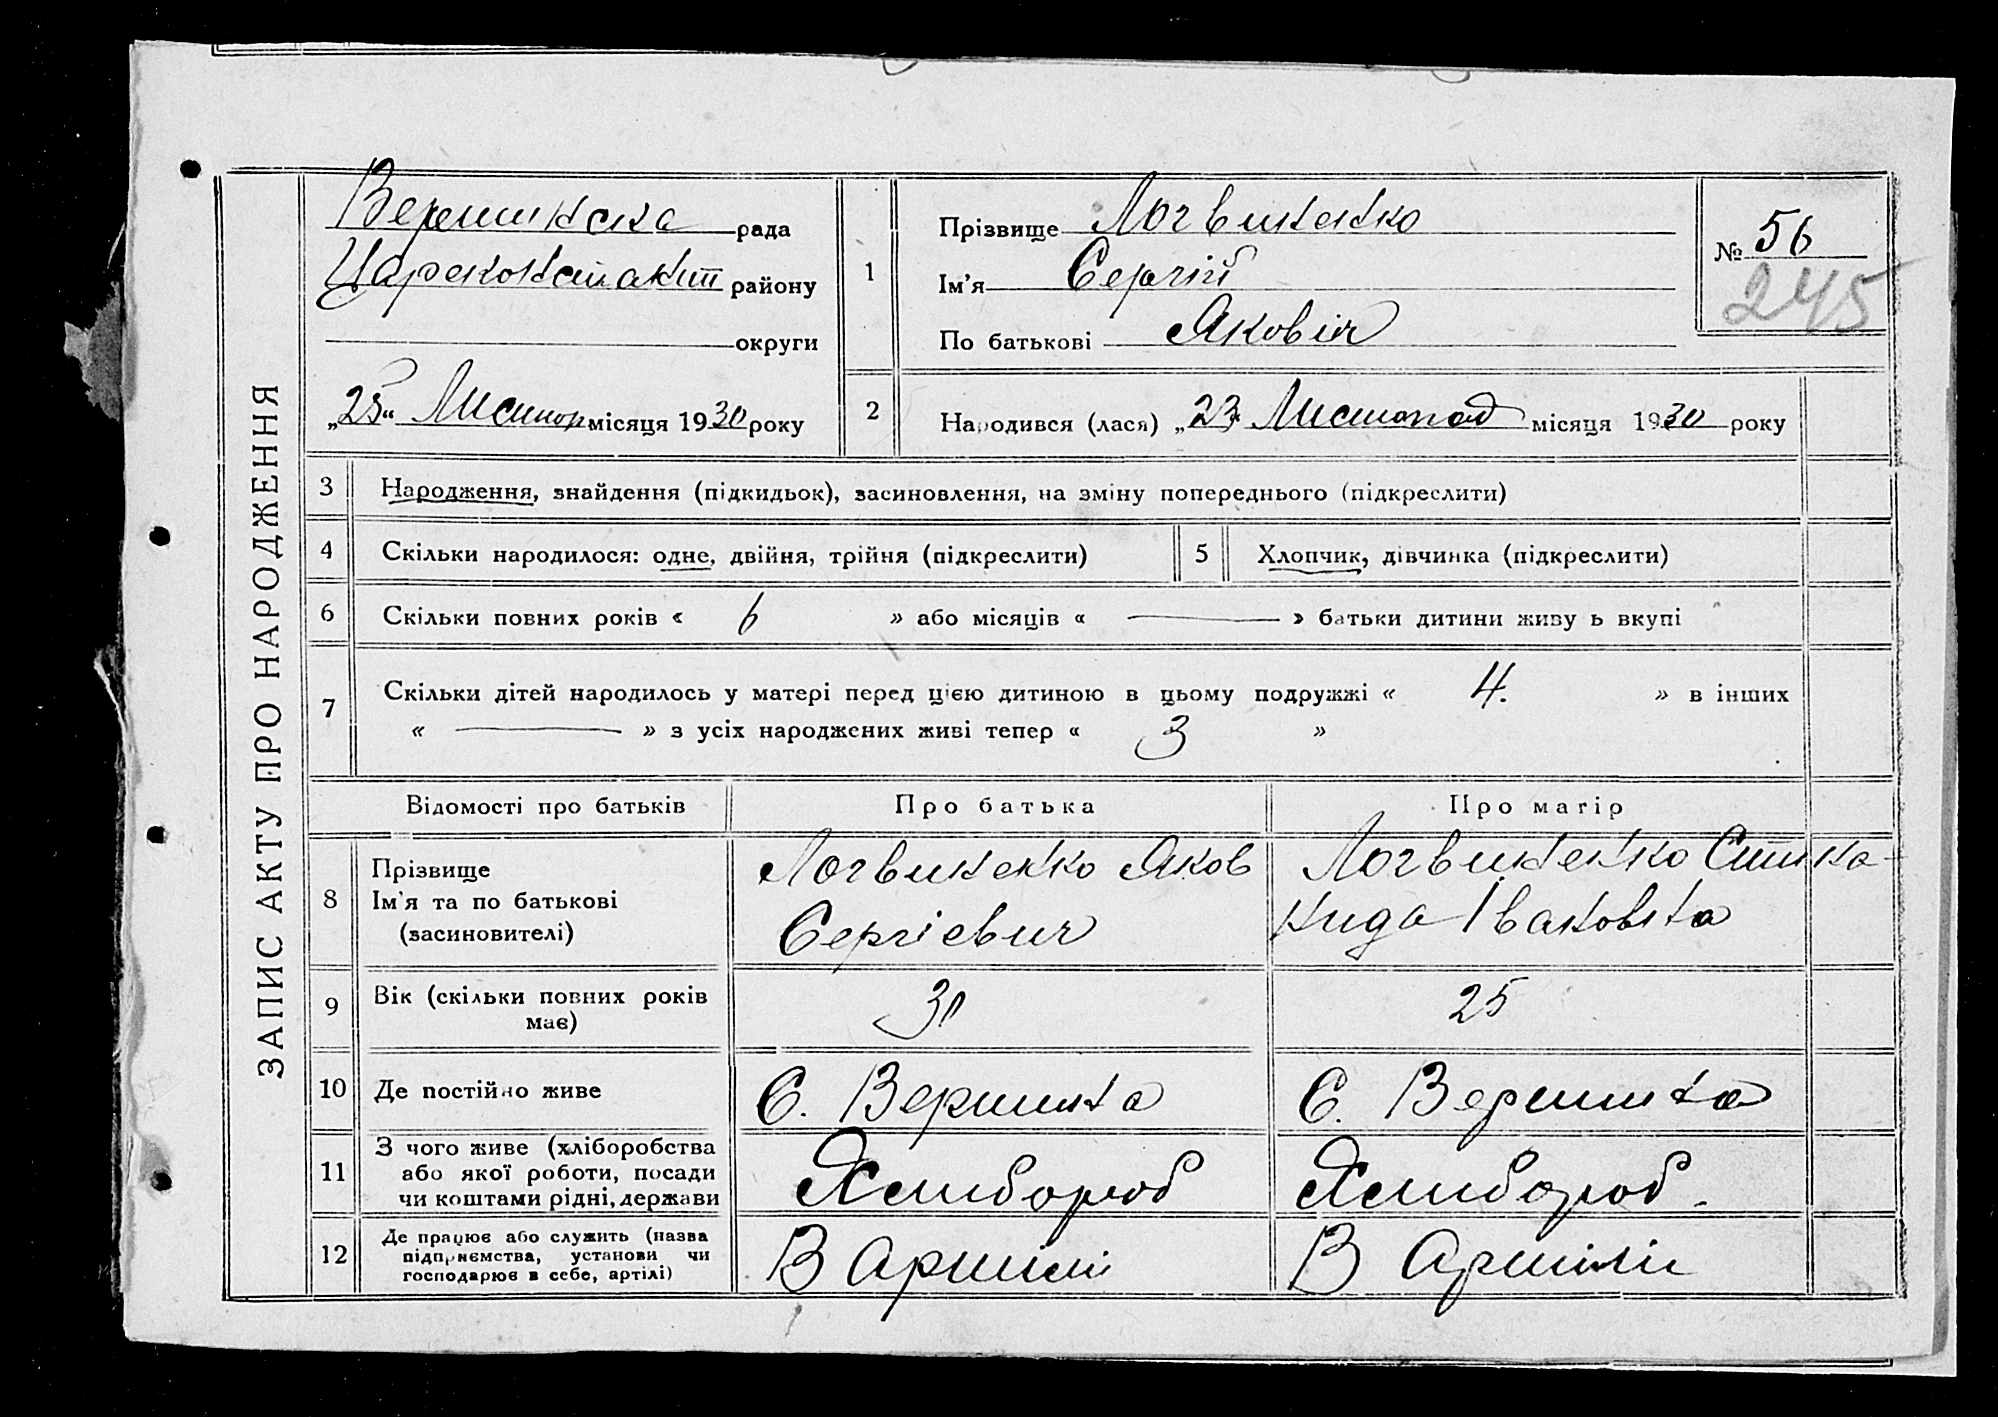 ЗАПИС АКТУ ПРО НАРОДЖЕННЯ
Вершинська рада
Царсконстант району
округи
„25“ Листопад місяця 1930 року
1
Прізвище Логвиненко
Ім'я Сергій
По батькові Яковіч
№ 56
245
2 Народився (лася) „23 Листопад місяця 1930 року
3 Народження, знайдення (підкидьок), засиновлення, на зміну попереднього (підкреслити)
4 Скільки народилося: одне, двійня, трійня (підкреслити) 5 Хлопчик, дівчинка (підкреслити)
6 Скільки повних років « 6 » або місяців « — » батьки дитини живу ь вкупі
7 Скільки дітей народилось у матері перед цією дитиною в цьому подружжі « 4. » в інших
« — » з усіх народжених живі тепер « 3 »
Відомості про батьків Про батька Про матір
8 Прізвище
Ім'я та по батькові
(засиновителі)
Логвиненко Яков
Сергієвич
Логвиненко Степа-
нида Івановна
9 Вік (скільки повних років
має)
31
25
10 Де постійно живе С. Вершина С. Вершина
11 З чого живе (хліборобства
або якої роботи, посади
чи коштами рідні, держави
Хлибороб Хлибороб.
12 Де працює або служить (назва
підприємства, установи чи
господарює в себе, артілі)
В Артілі В Артілі